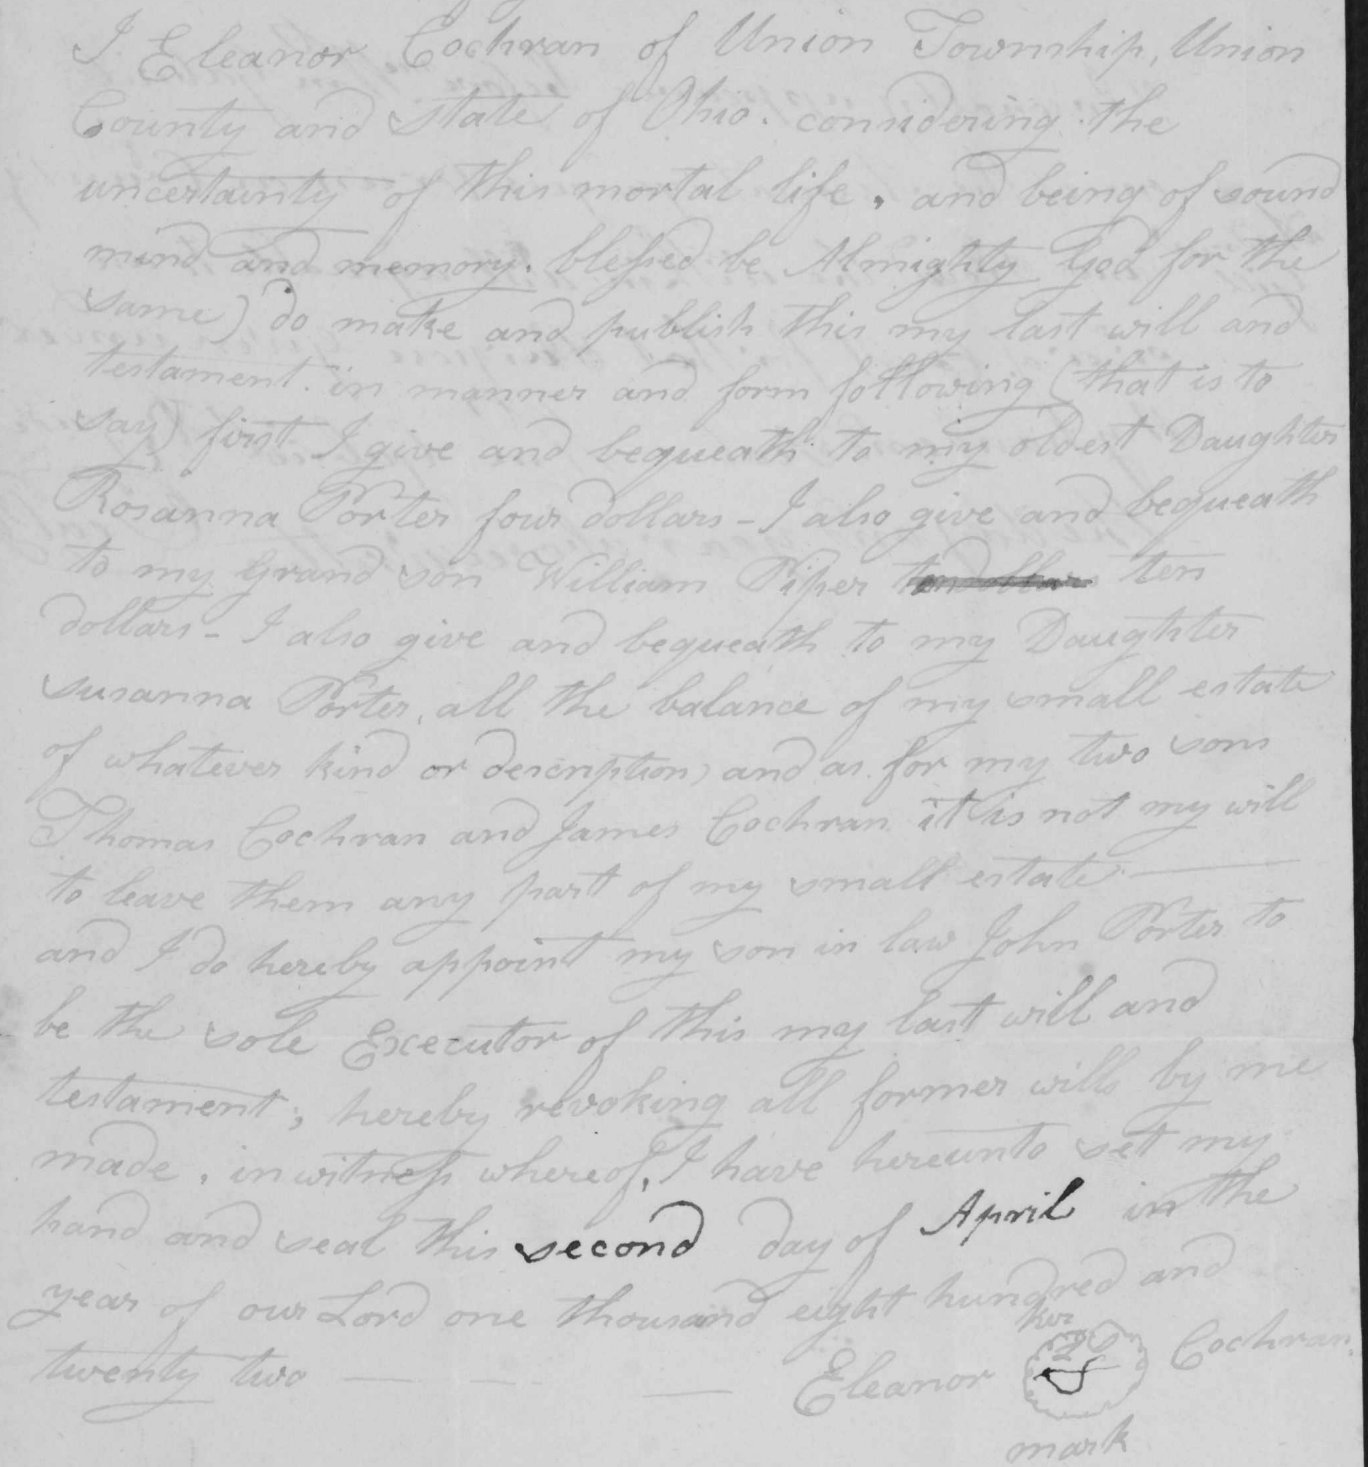 I Eleanor Cochran of Union Township, Union
County and state of Ohio. considering the
uncertainty of this mortal life, and being of sound
mind and memory. blessed be Almighty God for the
same) do make and publish this my last will and
testament. in manner and form following (that is to
say) first I give and bequeath to my oldest Daughter
Rosanna Porter four dollars - I also give and bequeath
to my grand son William Piper ten dollar ten
dollars - I also give and bequeath to my Daughter
susanna Porter, all the balance of my small estate
of whatever kind or description, and as for my two sons
Thomas Cochran and James Cochran it is not my will
to leave them any part of my small estate —
and I do hereby appoint my son in law John Porter to
be the sole Executor of this my last will and
testament; hereby revoking all former wills by me
made. in witness whereof, I have hereunto set my
hand and seal this second day of April in the
year of our Lord one thousand eight hundred and
twenty two — — — Eleanor her mark Cochran.